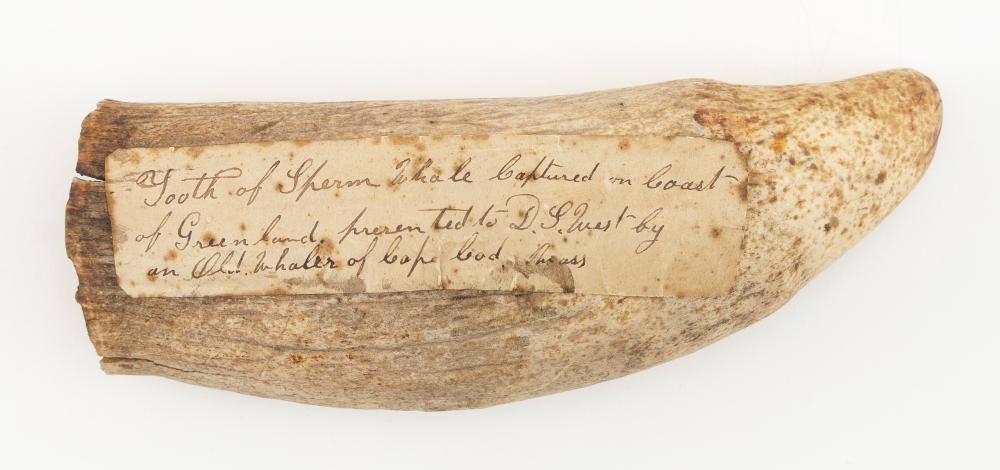 Tooth of Sperm Whale Captured on Coast
of Greenland, presented to D. S. West by
an Old Whaler of Cape Cod, Mass